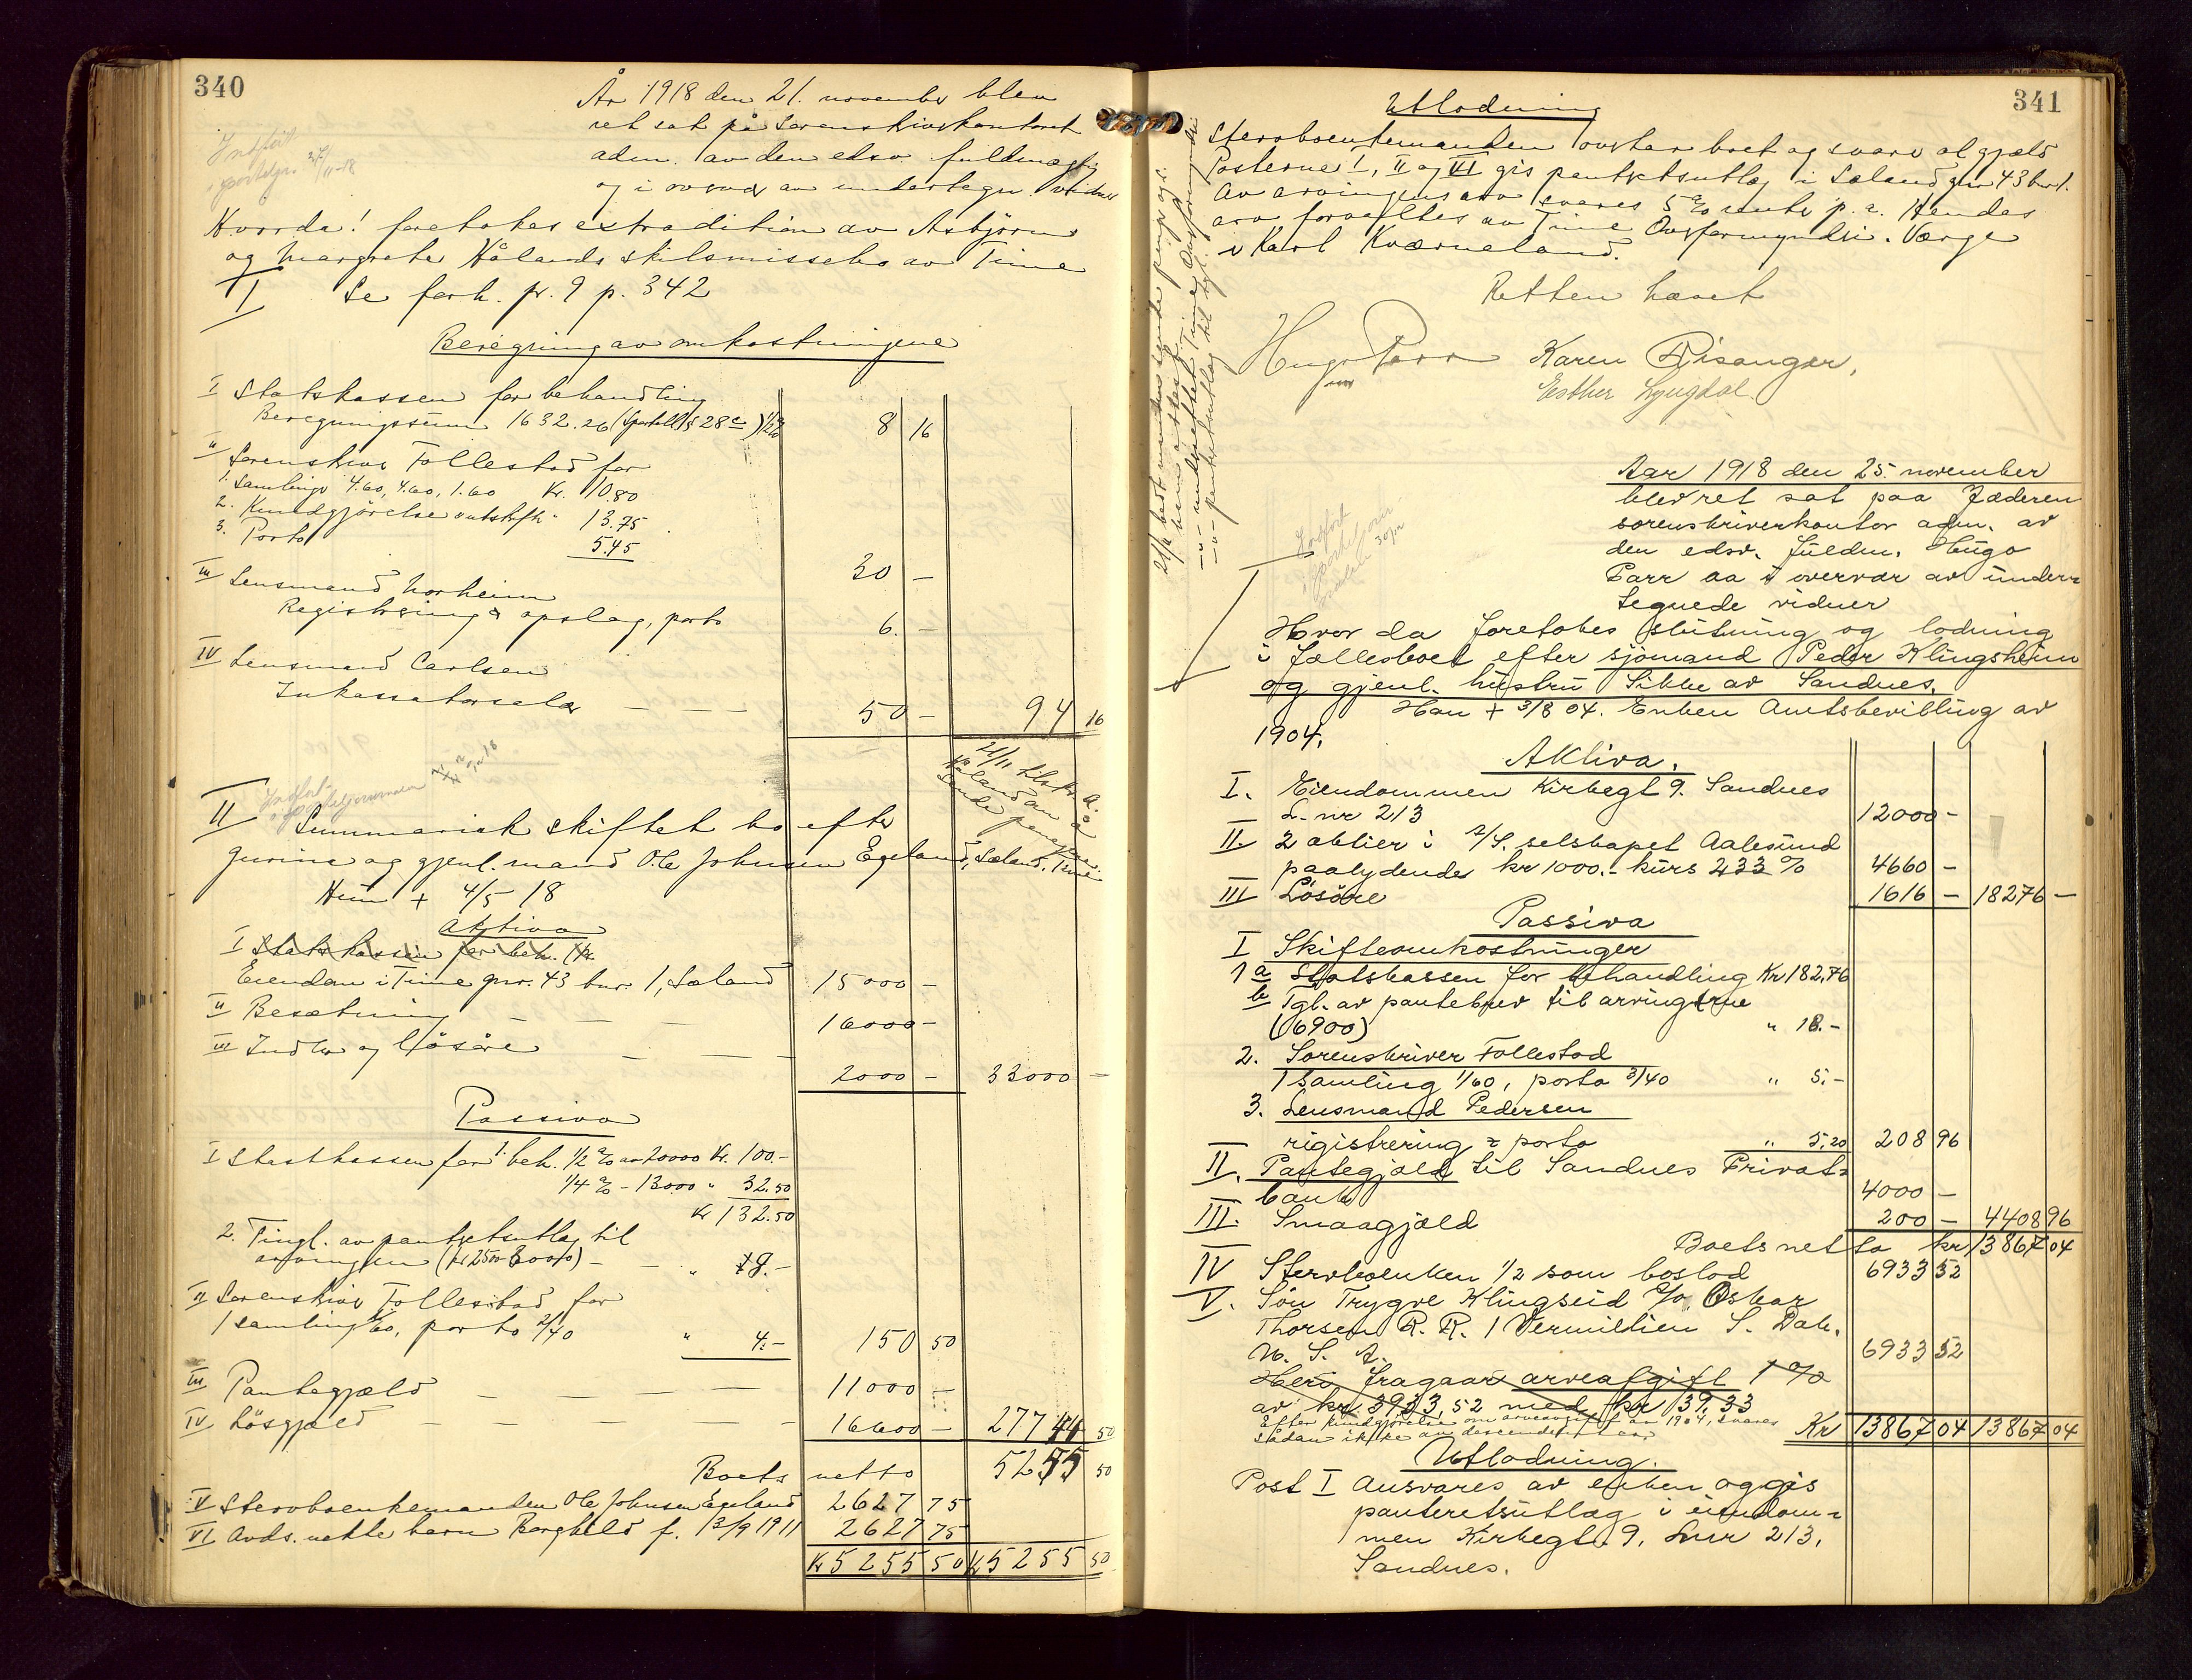 340
År 1918 den 21. november blev
ret sat på Sorenskriverkontoret
adm. av den edsv. fuldmægtig
og i overvær av undertegn. vidner
Indført
i sporteljr. 27/11-18
Hvorda! foretokes extradition av Asbjørn
og Margrete Hålands skilsmissebo av Time
I Se forh. pr. 9 p. 342
Beregning av omkostningene
I Statskassen for behandling
Beregningssum 1632.26 (Sportell. § 28 c) 1/2% 8 16
II Sorenskriver Follestad for
1. Samlinger 4.60, 4.60, 1.60 Kr. 10.80
2. Kundgjörelse utskrift " 13.75
3. Porto 5.45
30 –
III Lensmand Norheim
Registrering & opslag, porto 6. –
IV Lensmand Carlsen
Inkassatorsalær – – – 50 – 94 16
Indført
i sporteljournalen
II Summarisk skiftet bo efter
Gurine og gjenl. mand Ole Johnsen Egeland, Sæland, Time
Hun + 4/5 18
Aktiva
I Statskassen for beh.
Eiendom i Time gnr. 43 bnr. 1, Sæland 15000 –
II Besætning – – – 16000 –
III Indbo og Løsøre – – 2000 – 33000 –
Passiva
I Statskassen for 1. beh. 1/2 % av 20000 Kr. 100.–
1/4 % – 13000 " 32.50
Kr 132.50
2. Tingl. av pantretsutlæg til
arvingen – – "
II Sorenskriver Follestad for
1 samling 1/60, porto 2/40 " 4.– 150 50
III Pantegjæld – – – – 11000 –
IV Løsgjæld – – – – 16600 – 27744 50
Boets netto 5255 50
V Stervboenkemanden Ole Johnsen Egeland 2627 75
VI Avds. umdl. barn Borghild f. 13/9 1911 2627 75
Kr 5255 50 Kr 5255 50
341
Utlodning
Stervboenkemanden overtar boet og svarer al gjæld
Posterne I, II og VI gis pantretsutlæg i Sæland gnr 43 bnr 1.
Av arvingens arv svares 5 % rente p. a. Hendes
arv forvaltes av Time Overformynderi. Værge
er Karl Kværneland.
Retten hævet
Hugo Parr Karen Risanger,
Esther Lyngdal.
Aar 1918 den 25. november
blev ret sat paa Jæderen
sorenskriverkontor adm. av
den edsv. fuldm. Hugo
Parr aa i overvær av under=
tegnede vidner
Indført
Hvor da foretokes slutning og lodning
i fællesboet efter sjömand Peder Klingsheim
og gjenl. hustru Sikke av Sandnes.
Han + 3/8 04. Enken Amtsbevilling av
1904.
Aktiva.
I. Eiendommen Kirkegt 9. Sandnes
L. nr 213 12000 –
II. 2 aktier i A/S. selskapet Aalesund
paalydende kr 1000.– kurs 233 % 4660 –
III Lösöre 1616 – 18276 –
Passiva
I Skifteomkostninger
1 a Statskassen for behandling Kr 182,76
b Tgl. av pantebrev til arvingerne
(6900) " 18.–
2. Sorenskriver Follestad
1 samling 1/60, porto 3/40 " 5.–
3. Lensmand Pedersen
rigistrering & porto " 5,20 208 96
II. Pantegjæld til Sandnes Privat=
bank 4000 –
III. Smaagjæld 200 – 4408 96
Boets netto kr 13867 04
IV Stervboenken 1/2 som boslod 6933 52
V. Sön Trygve Klingseid c/o. Oskar
Thorsen R. R. 1 Vermillien S. Dak.
U. S. A. 6933 52
Heri fragaar arveafgift 1 %
av kr. 3933,52 med kr 39,33
Efter kundgjörelse om arveavgift av 1904, svares
sådan ikke av descendentarv Kr 13867 04 13867 04
Utlodning.
Post I Ansvares av enken og gis
panteretsutlæg i eiendom=
men Kirkegt. 9, Lnr 213,
Sandnes.